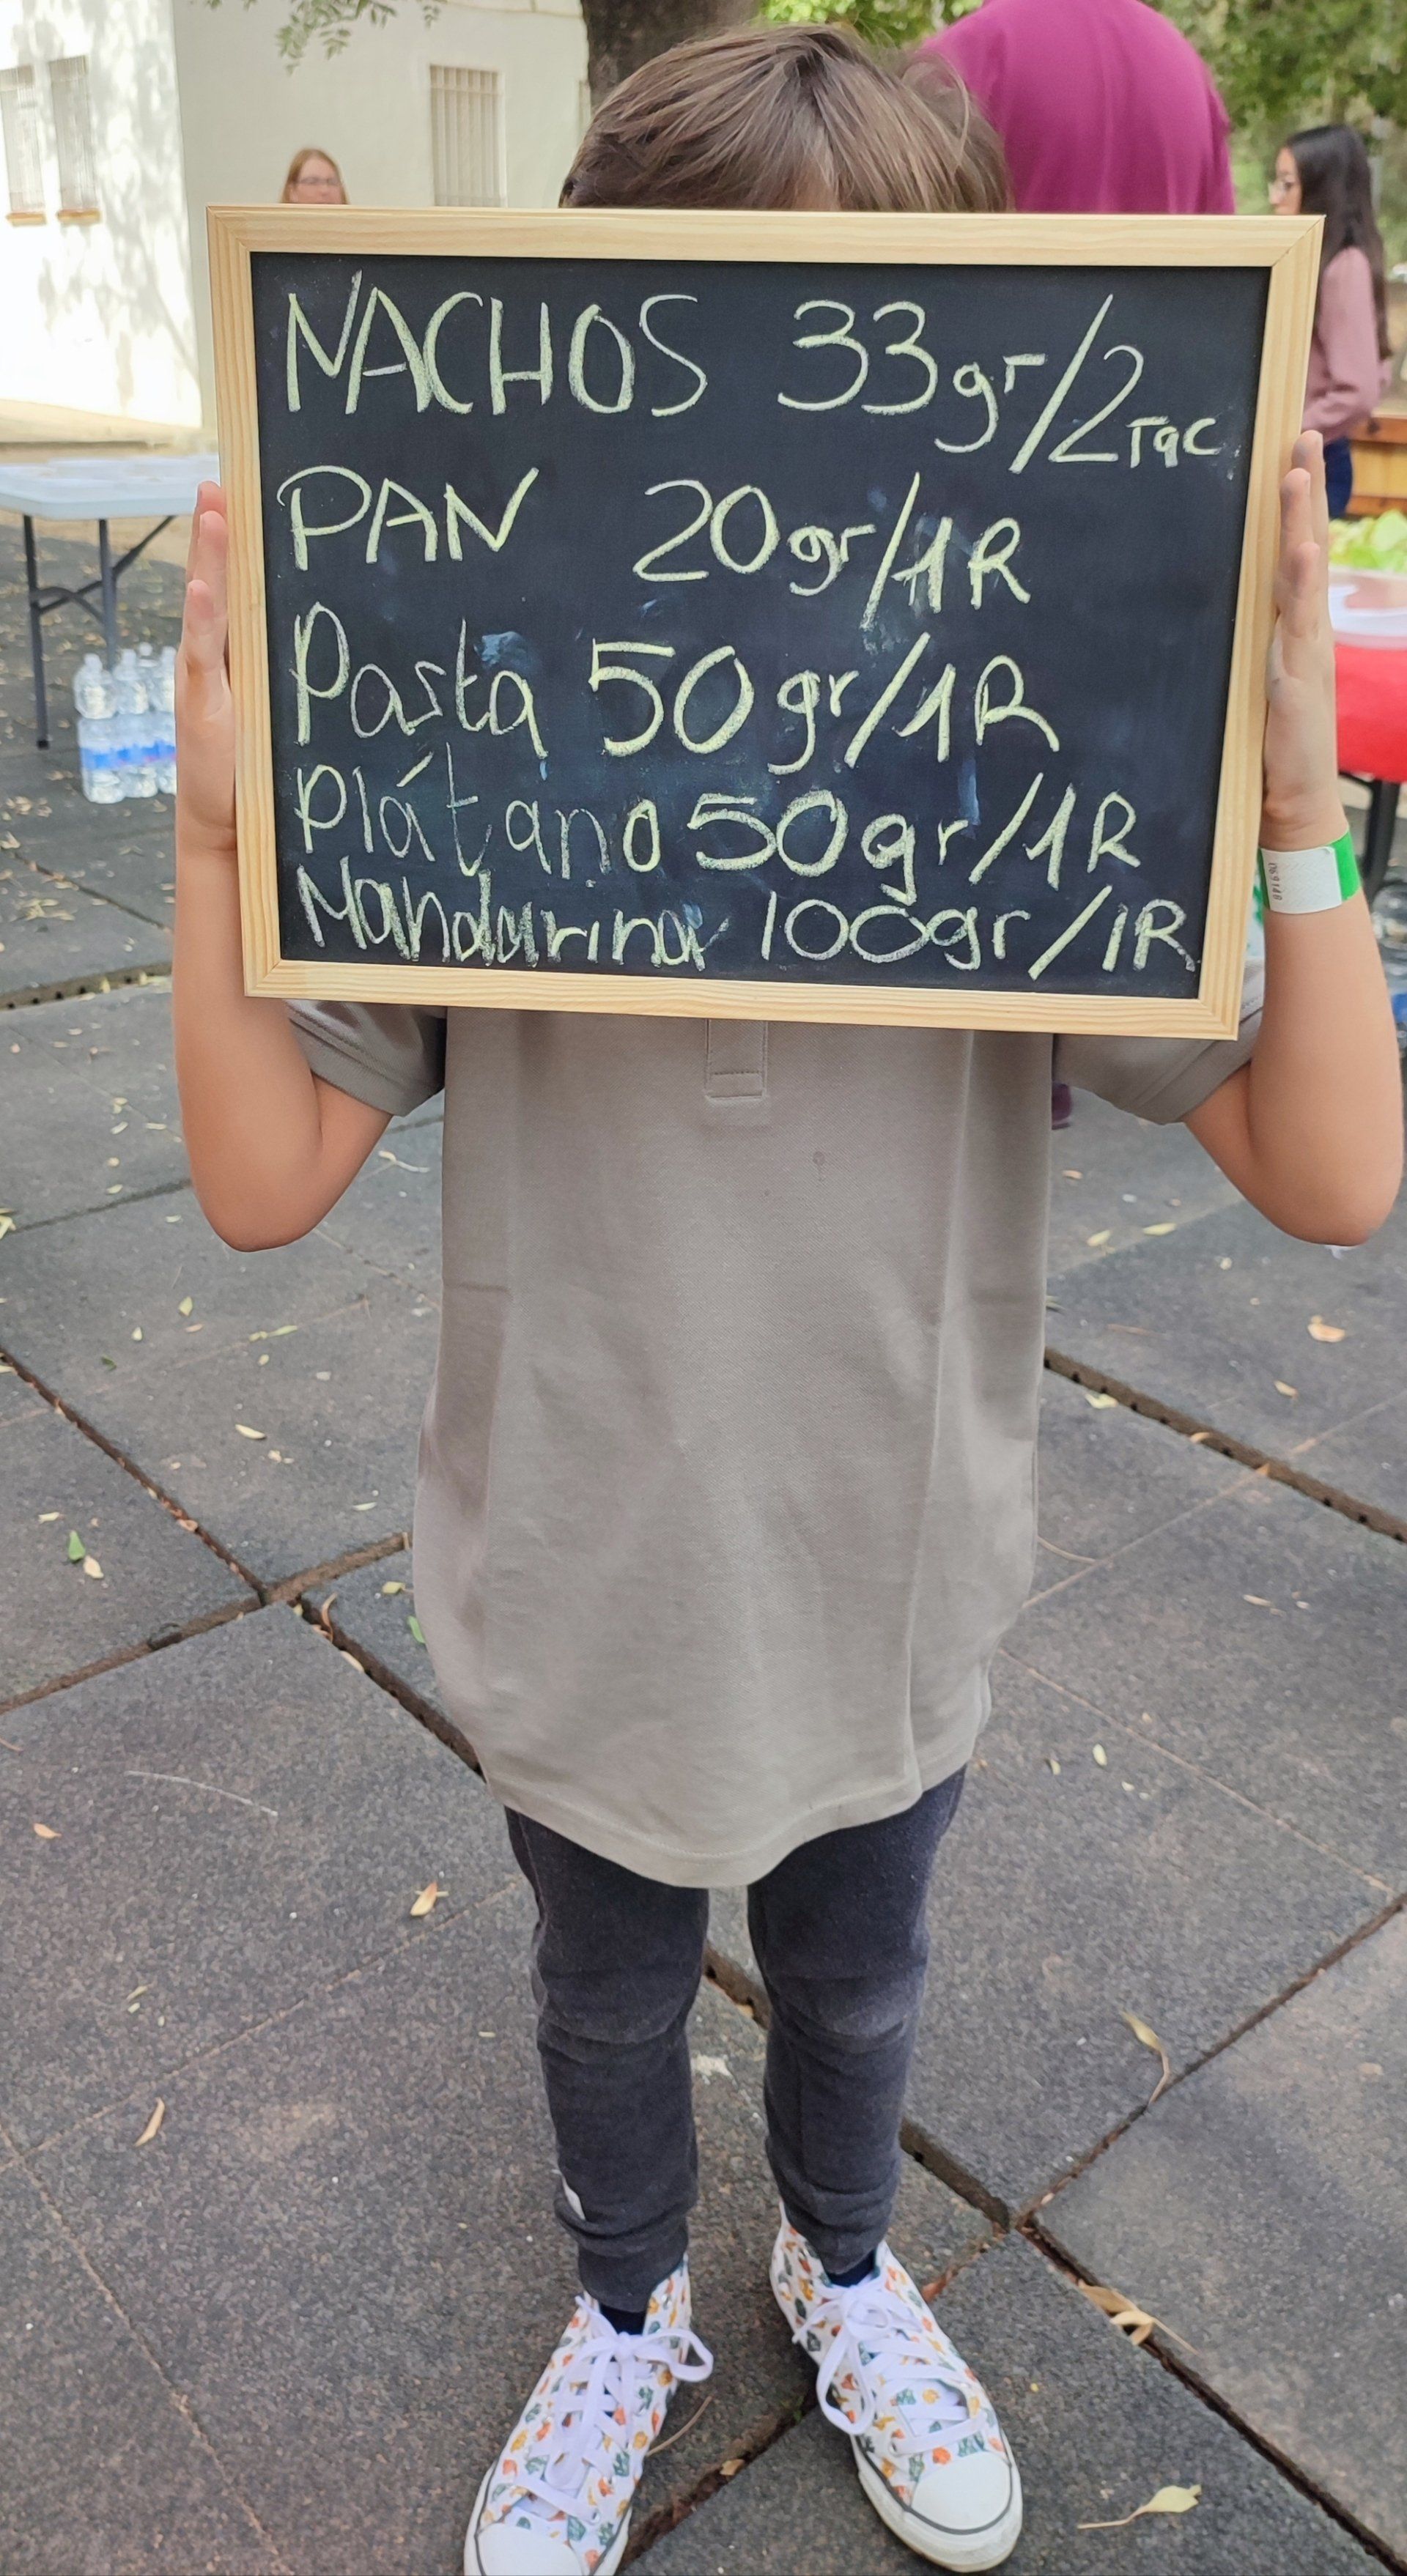 NACHOS 33gr/2rac
PAN 20gr/1R
Pasta 50gr/1R
Plátano 50gr/1R
Mandarina 100gr/1R